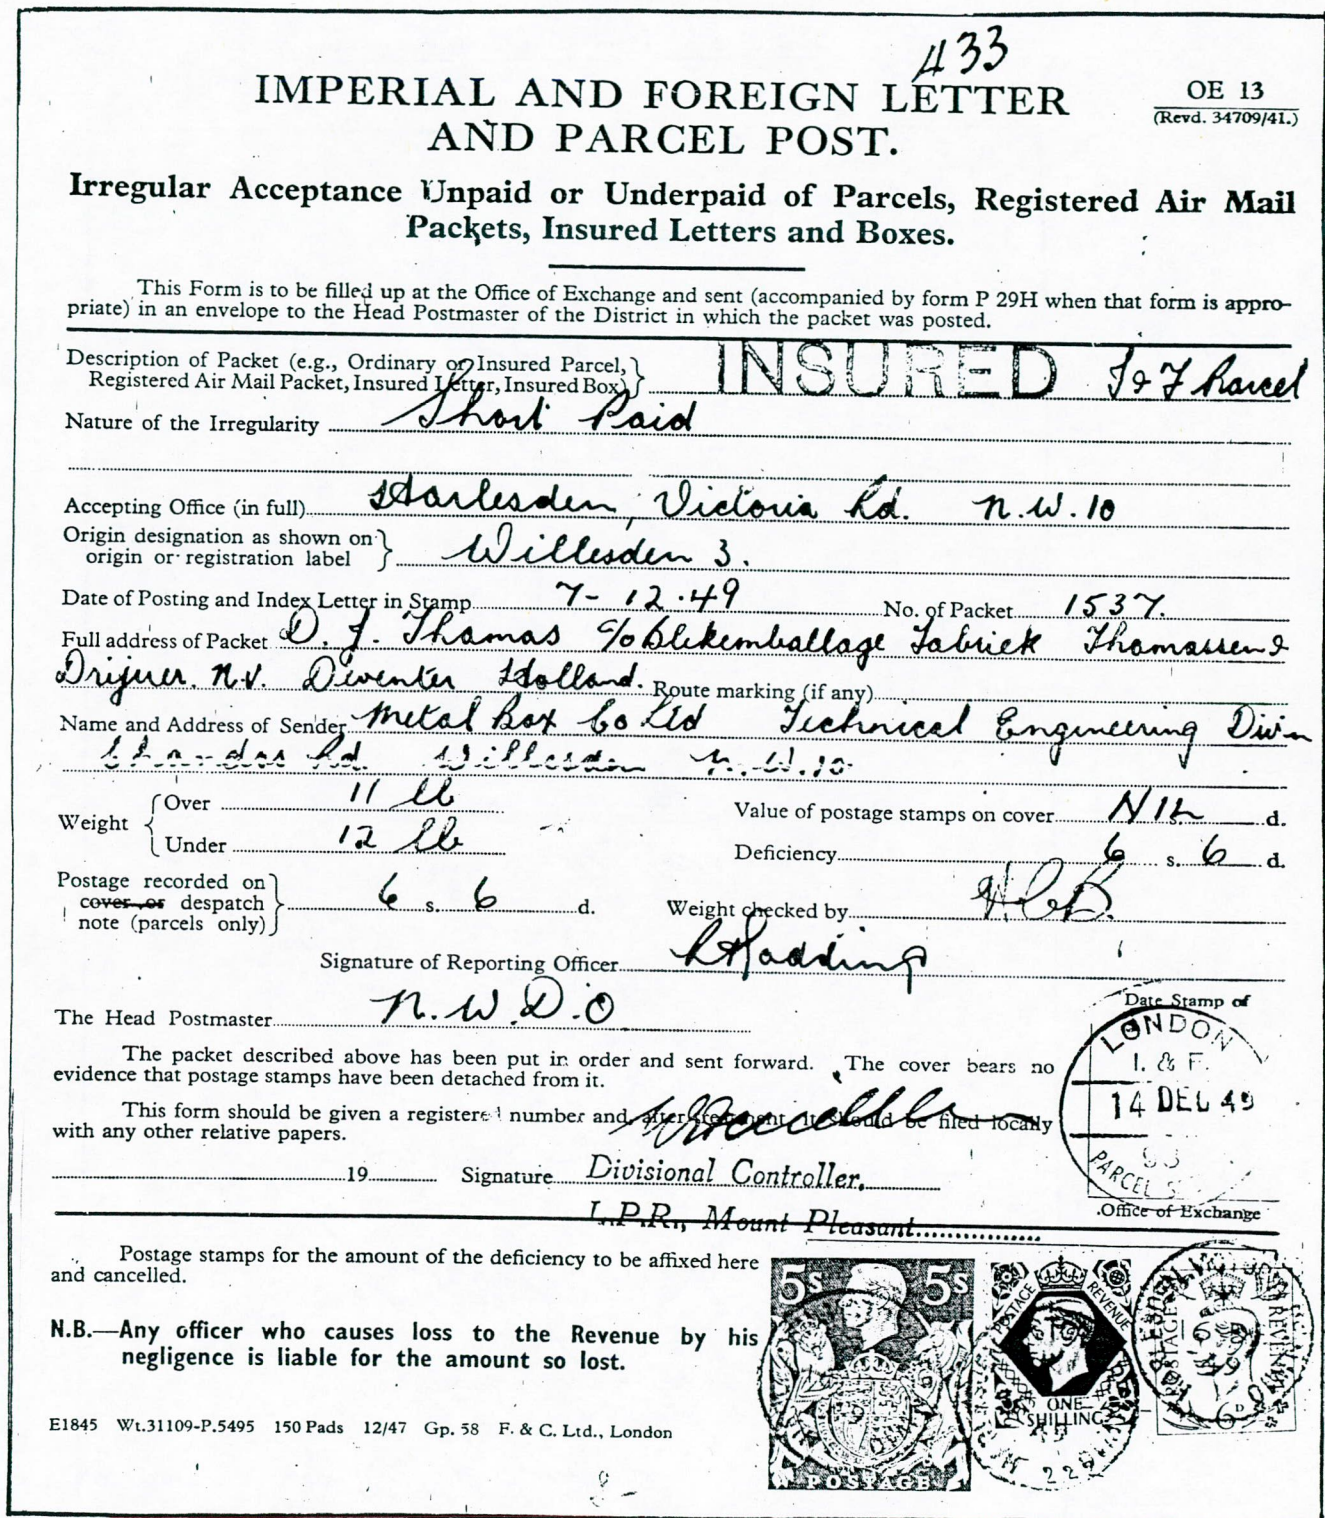 433
IMPERIAL AND FOREIGN LETTER
AND PARCEL POST.
OE 13
(Revd. 34709/41.)
Irregular Acceptance Unpaid or Underpaid of Parcels, Registered Air Mail
Packets, Insured Letters and Boxes.
This Form is to be filled up at the Office of Exchange and sent (accompanied by form P 29H when that form is appro-
priate) in an envelope to the Head Postmaster of the District in which the packet was posted.
Description of Packet (e.g., Ordinary or Insured Parcel,
Registered Air Mail Packet, Insured Letter, Insured Box) INSURED I & F Parcel
Nature of the Irregularity Short Paid
Accepting Office (in full) Harlesden, Victoria Rd. N.W.10
Origin designation as shown on
origin or registration label Willesden 3.
Date of Posting and Index Letter in Stamp 7-12.49 No. of Packet 1537.
Full address of Packet D. J. Thomas c/o Blikemballage Fabriek Thomassen &
Drijver. N.V. Deventer Holland. Route marking (if any)
Name and Address of Sender Metal Box Co Ltd Technical Engineering Divn
Chandos Rd. Willesden N.W.10
Weight Over 11 lb
Under 12 lb
Value of postage stamps on cover NIL d.
Deficiency 6 s. 6 d.
Postage recorded on
cover or despatch
note (parcels only) 6 s. 6 d.
Weight checked by
Signature of Reporting Officer
The Head Postmaster N.W.D.O
Date Stamp of
LONDON
I. & F.
14 DEC 49
PARCEL
Office of Exchange
The packet described above has been put in order and sent forward. The cover bears no
evidence that postage stamps have been detached from it.
This form should be given a registered number and, after treatment, it should be filed locally
with any other relative papers.
19 Signature Divisional Controller,
L.P.R., Mount Pleasant
Postage stamps for the amount of the deficiency to be affixed here
and cancelled.
N.B.—Any officer who causes loss to the Revenue by his
negligence is liable for the amount so lost.
5s 5s
POSTAGE
POSTAGE REVENUE
ONE
SHILLING
POSTAGE REVENUE
6D
E1845 Wt.31109-P.5495 150 Pads 12/47 Gp. 58 F. & C. Ltd., London